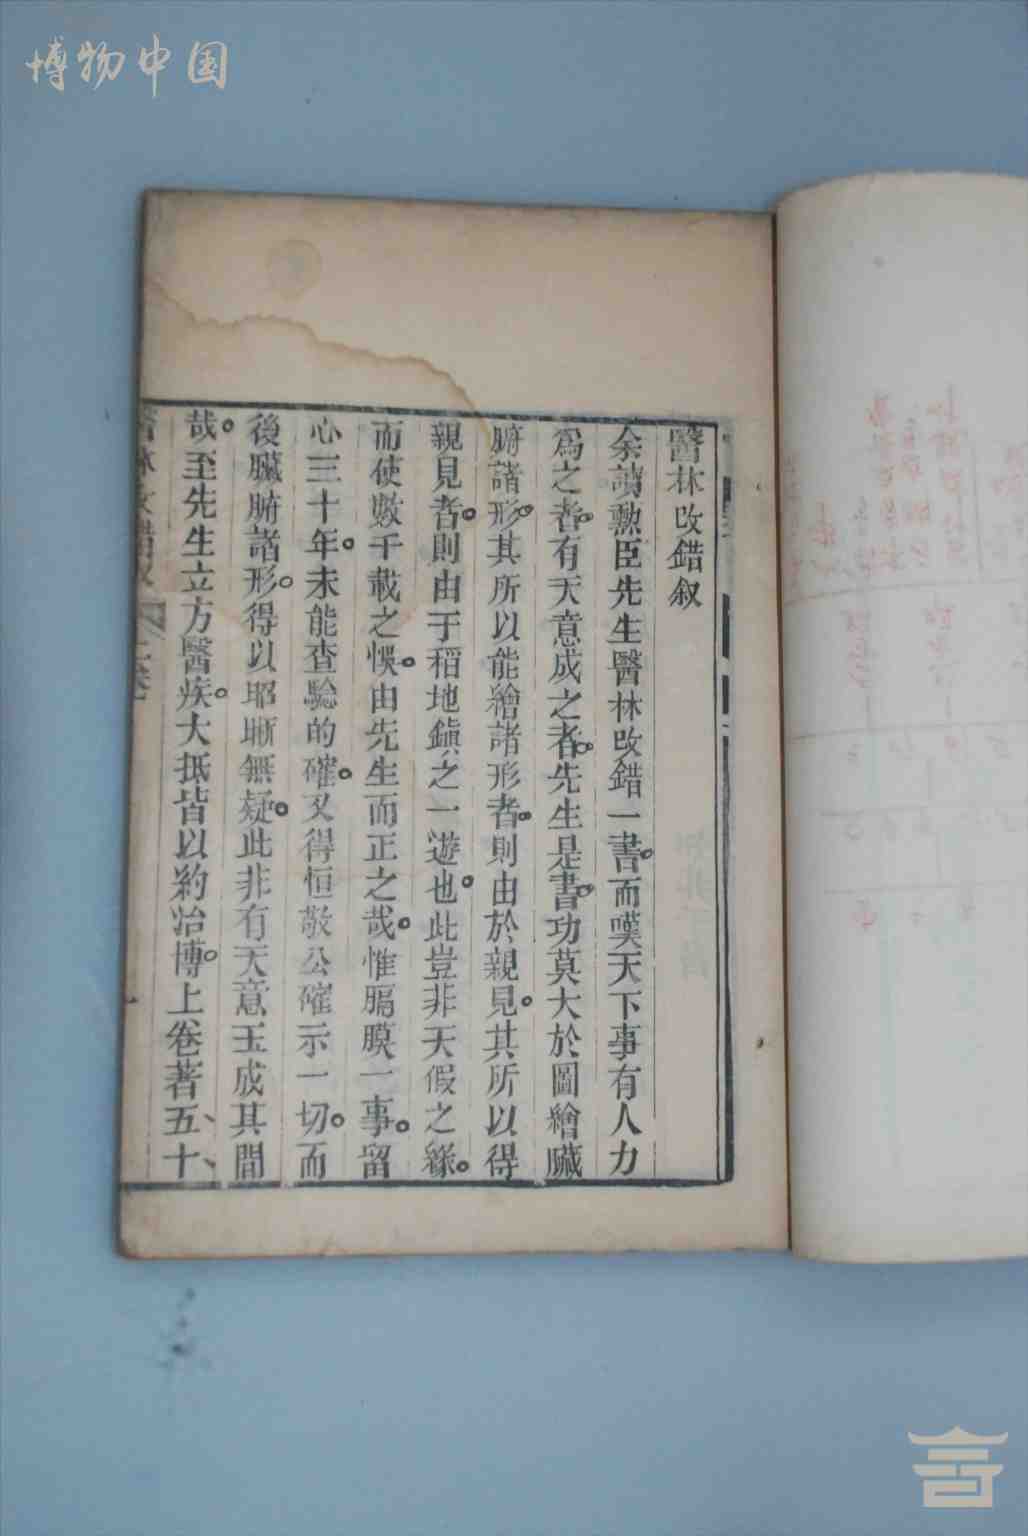 博物中国
醫林改錯叙
余讀勲臣先生醫林改錯一書。而嘆天下事有人力
爲之者。有天意成之者。先生是書。功莫大於圖繪臟
腑諸形。其所以能繪諸形者。則由於親見。其所以得
親見者。則由于稻地鎮之一遊也。此豈非天假之緣。
而使數千載之悞。由先生而正之哉。惟膈膜一事。留
心三十年。未能查驗的確。又得恒敬公確示一切。而
後臟腑諸形。得以昭晰無疑。此非有天意玉成其間
哉。至先生立方醫疾。大抵皆以約冶博。上卷著五十、